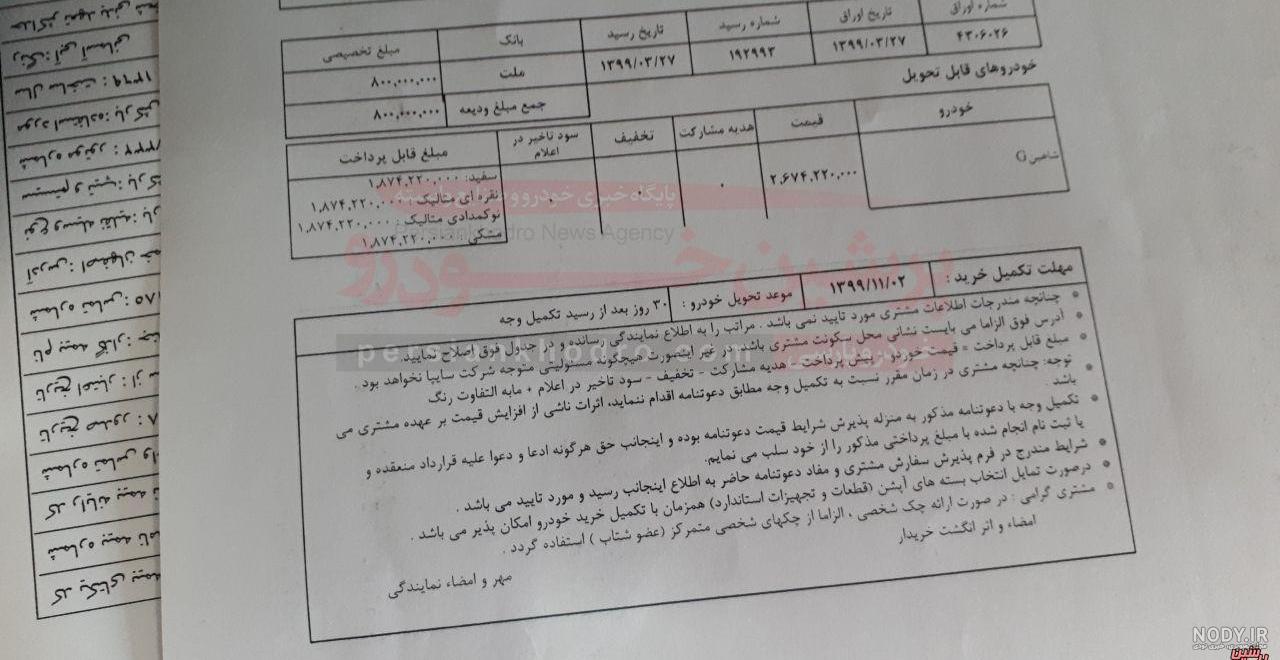 شماره اوراق	تاریخ اوراق	شماره رسید	تاریخ رسید	بانک	مبلغ تخصیصی
۴۳۰۶۰۲۶	۱۳۹۹/۰۳/۲۷	۱۹۲۹۹۳	۱۳۹۹/۰۳/۲۷	ملت	۸۰۰,۰۰۰,۰۰۰
جمع مبلغ ودیعه	۸۰۰,۰۰۰,۰۰۰
خودروهای قابل تحویل
خودرو	قیمت	هدیه مشارکت	تخفیف	سود تاخیر در اعلام	مبلغ قابل پرداخت
شاهین G	۲,۶۷۴,۲۲۰,۰۰۰	۰	۰	۰	سفید: ۱,۸۷۴,۲۲۰,۰۰۰
نقره ای متالیک: ۱,۸۷۴,۲۲۰,۰۰۰
نوکمدادی متالیک: ۱,۸۷۴,۲۲۰,۰۰۰
مشکی: ۱,۸۷۴,۲۲۰,۰۰۰
پایگاه خبری خودرو و صنایع وابسته
Persiankhodro News Agency
پرشین خودرو
persiankhodro.com
مهلت تکمیل خرید : ۱۳۹۹/۱۱/۰۲ موعد تحویل خودرو : ۳۰ روز بعد از رسید تکمیل وجه
چنانچه مندرجات اطلاعات مشتری مورد تایید نمی باشد . مراتب را به اطلاع نمایندگی رسانده و در جدول فوق اصلاح نمایید.
آدرس فوق الزاما می بایست نشانی محل سکونت مشتری باشد. در غیر اینصورت هیچگونه مسئولیتی متوجه شرکت سایپا نخواهد بود .
مبلغ قابل پرداخت = قیمت خودرو - پیش پرداخت - هدیه مشارکت - تخفیف - سود تاخیر در اعلام + مابه التفاوت رنگ
توجه: چنانچه مشتری در زمان مقرر نسبت به تکمیل وجه مطابق دعوتنامه اقدام ننماید، اثرات ناشی از افزایش قیمت بر عهده مشتری می
باشد .
تکمیل وجه با دعوتنامه مذکور به منزله پذیرش شرایط قیمت دعوتنامه بوده و اینجانب حق هرگونه ادعا و دعوا علیه قرارداد منعقده و
یا ثبت نام انجام شده با مبلغ پرداختی مذکور را از خود سلب می نمایم.
شرایط مندرج در فرم پذیرش سفارش مشتری و مفاد دعوتنامه حاضر به اطلاع اینجانب رسید و مورد تایید می باشد .
درصورت تمایل انتخاب بسته های آپشن (قطعات و تجهیزات استاندارد) همزمان با تکمیل خرید خودرو امکان پذیر می باشد .
مشتری گرامی : در صورت ارائه چک شخصی ، الزاما از چکهای شخصی متمرکز (عضو شتاب ) استفاده گردد .
امضاء و اثر انگشت خریدار
مهر و امضاء نمایندگی
کد یکتای بیمه
شماره بیمه نامه
کد رایانه بیمه
شماره تماس
تاریخ صدور :
تاریخ اعتبار :
نام بیمه گذار :
شماره تماس :
آدرس : اصفهان
نوع وسیله نقلیه : بار
سیستم و تیپ :
شماره موتور :
مورد استفاده : بار
سال ساخت : ۱۳۶۹
رنگ : آبی آسمانی
NODY.IR
پرشین